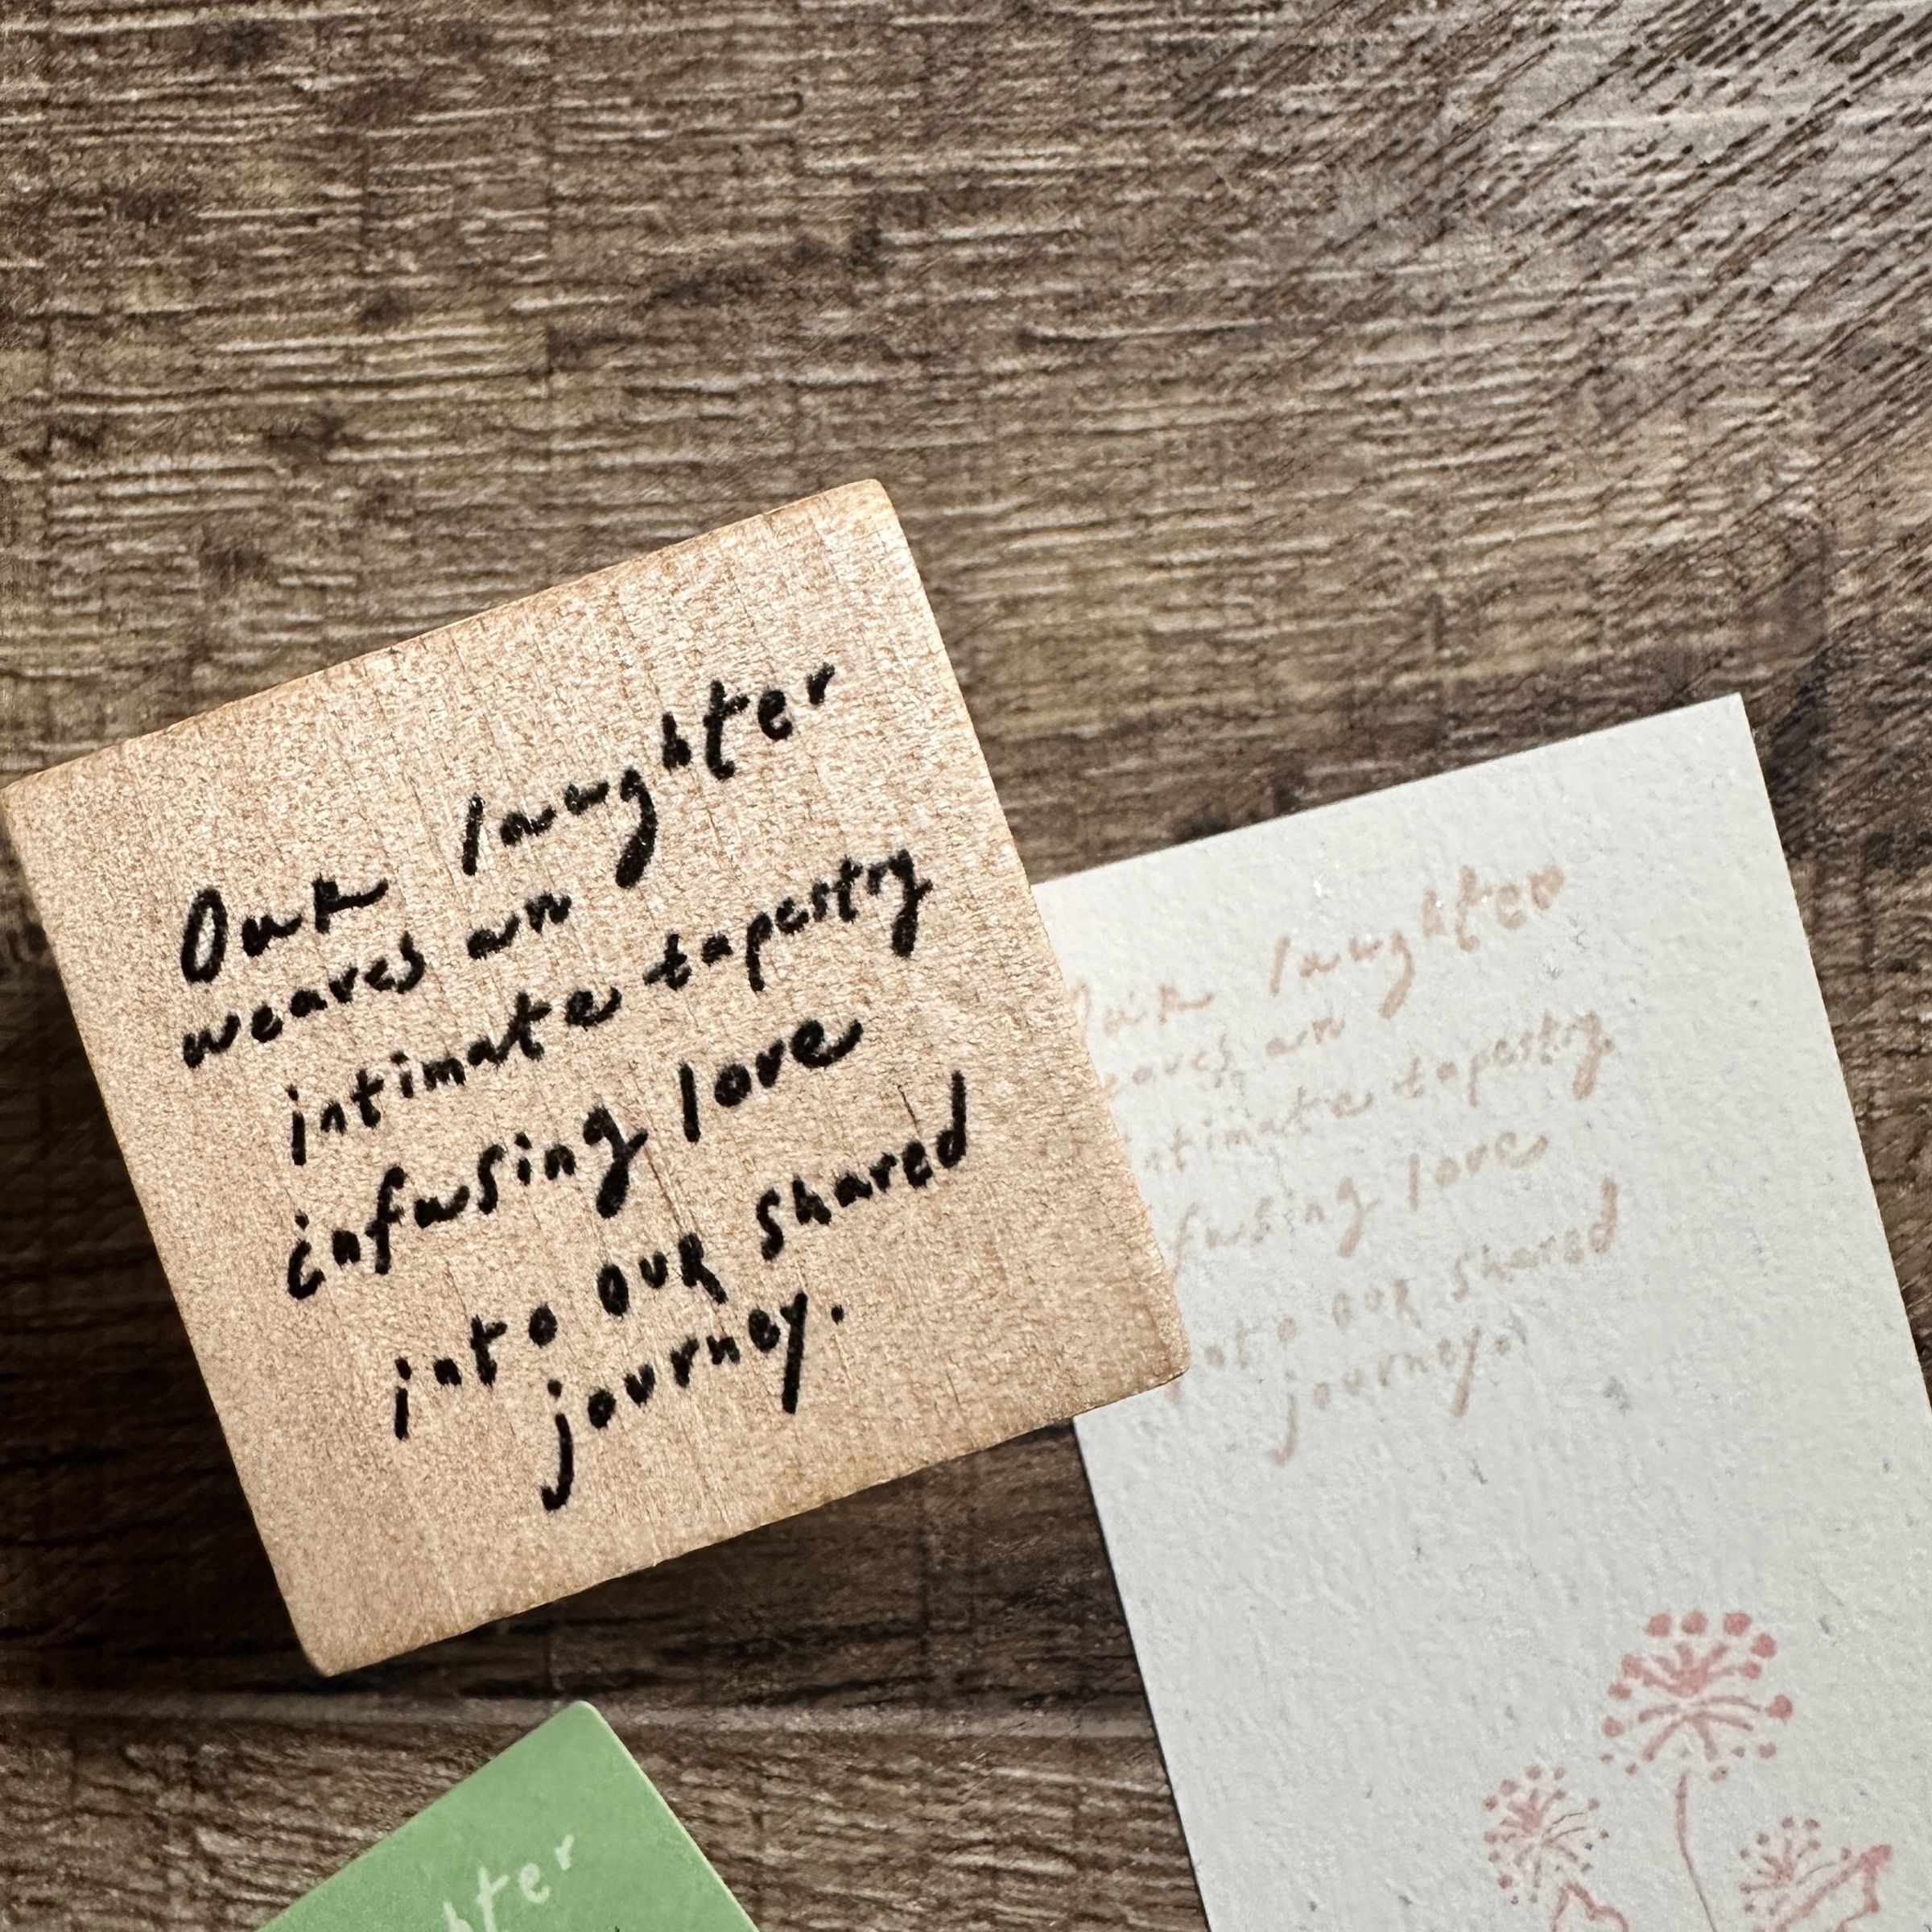 Our laughter
weaves an
intimate tapestry
infusing love
into our shared
journey.
Our laughter
weaves an
intimate tapestry
infusing love
into our shared
journey.
hter